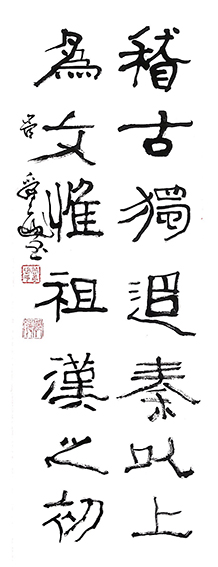 稽古獨追秦以上
為文惟祖漢之初